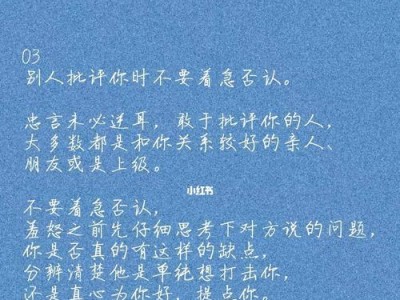 03
别人批评你时不要着急否认。
忠言未必逆耳，敢于批评你的人，
大多数都是和你关系较好的亲人、
朋友或是上级。
小红书
不要着急否认，
羞怒之前先仔细思考下对方说的问题，
你是否真的有这样的缺点，
分辨清楚他是单纯想打击你，
还是真心为你好，提点你。